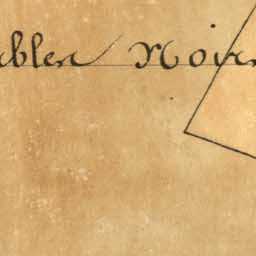 ables Noirs